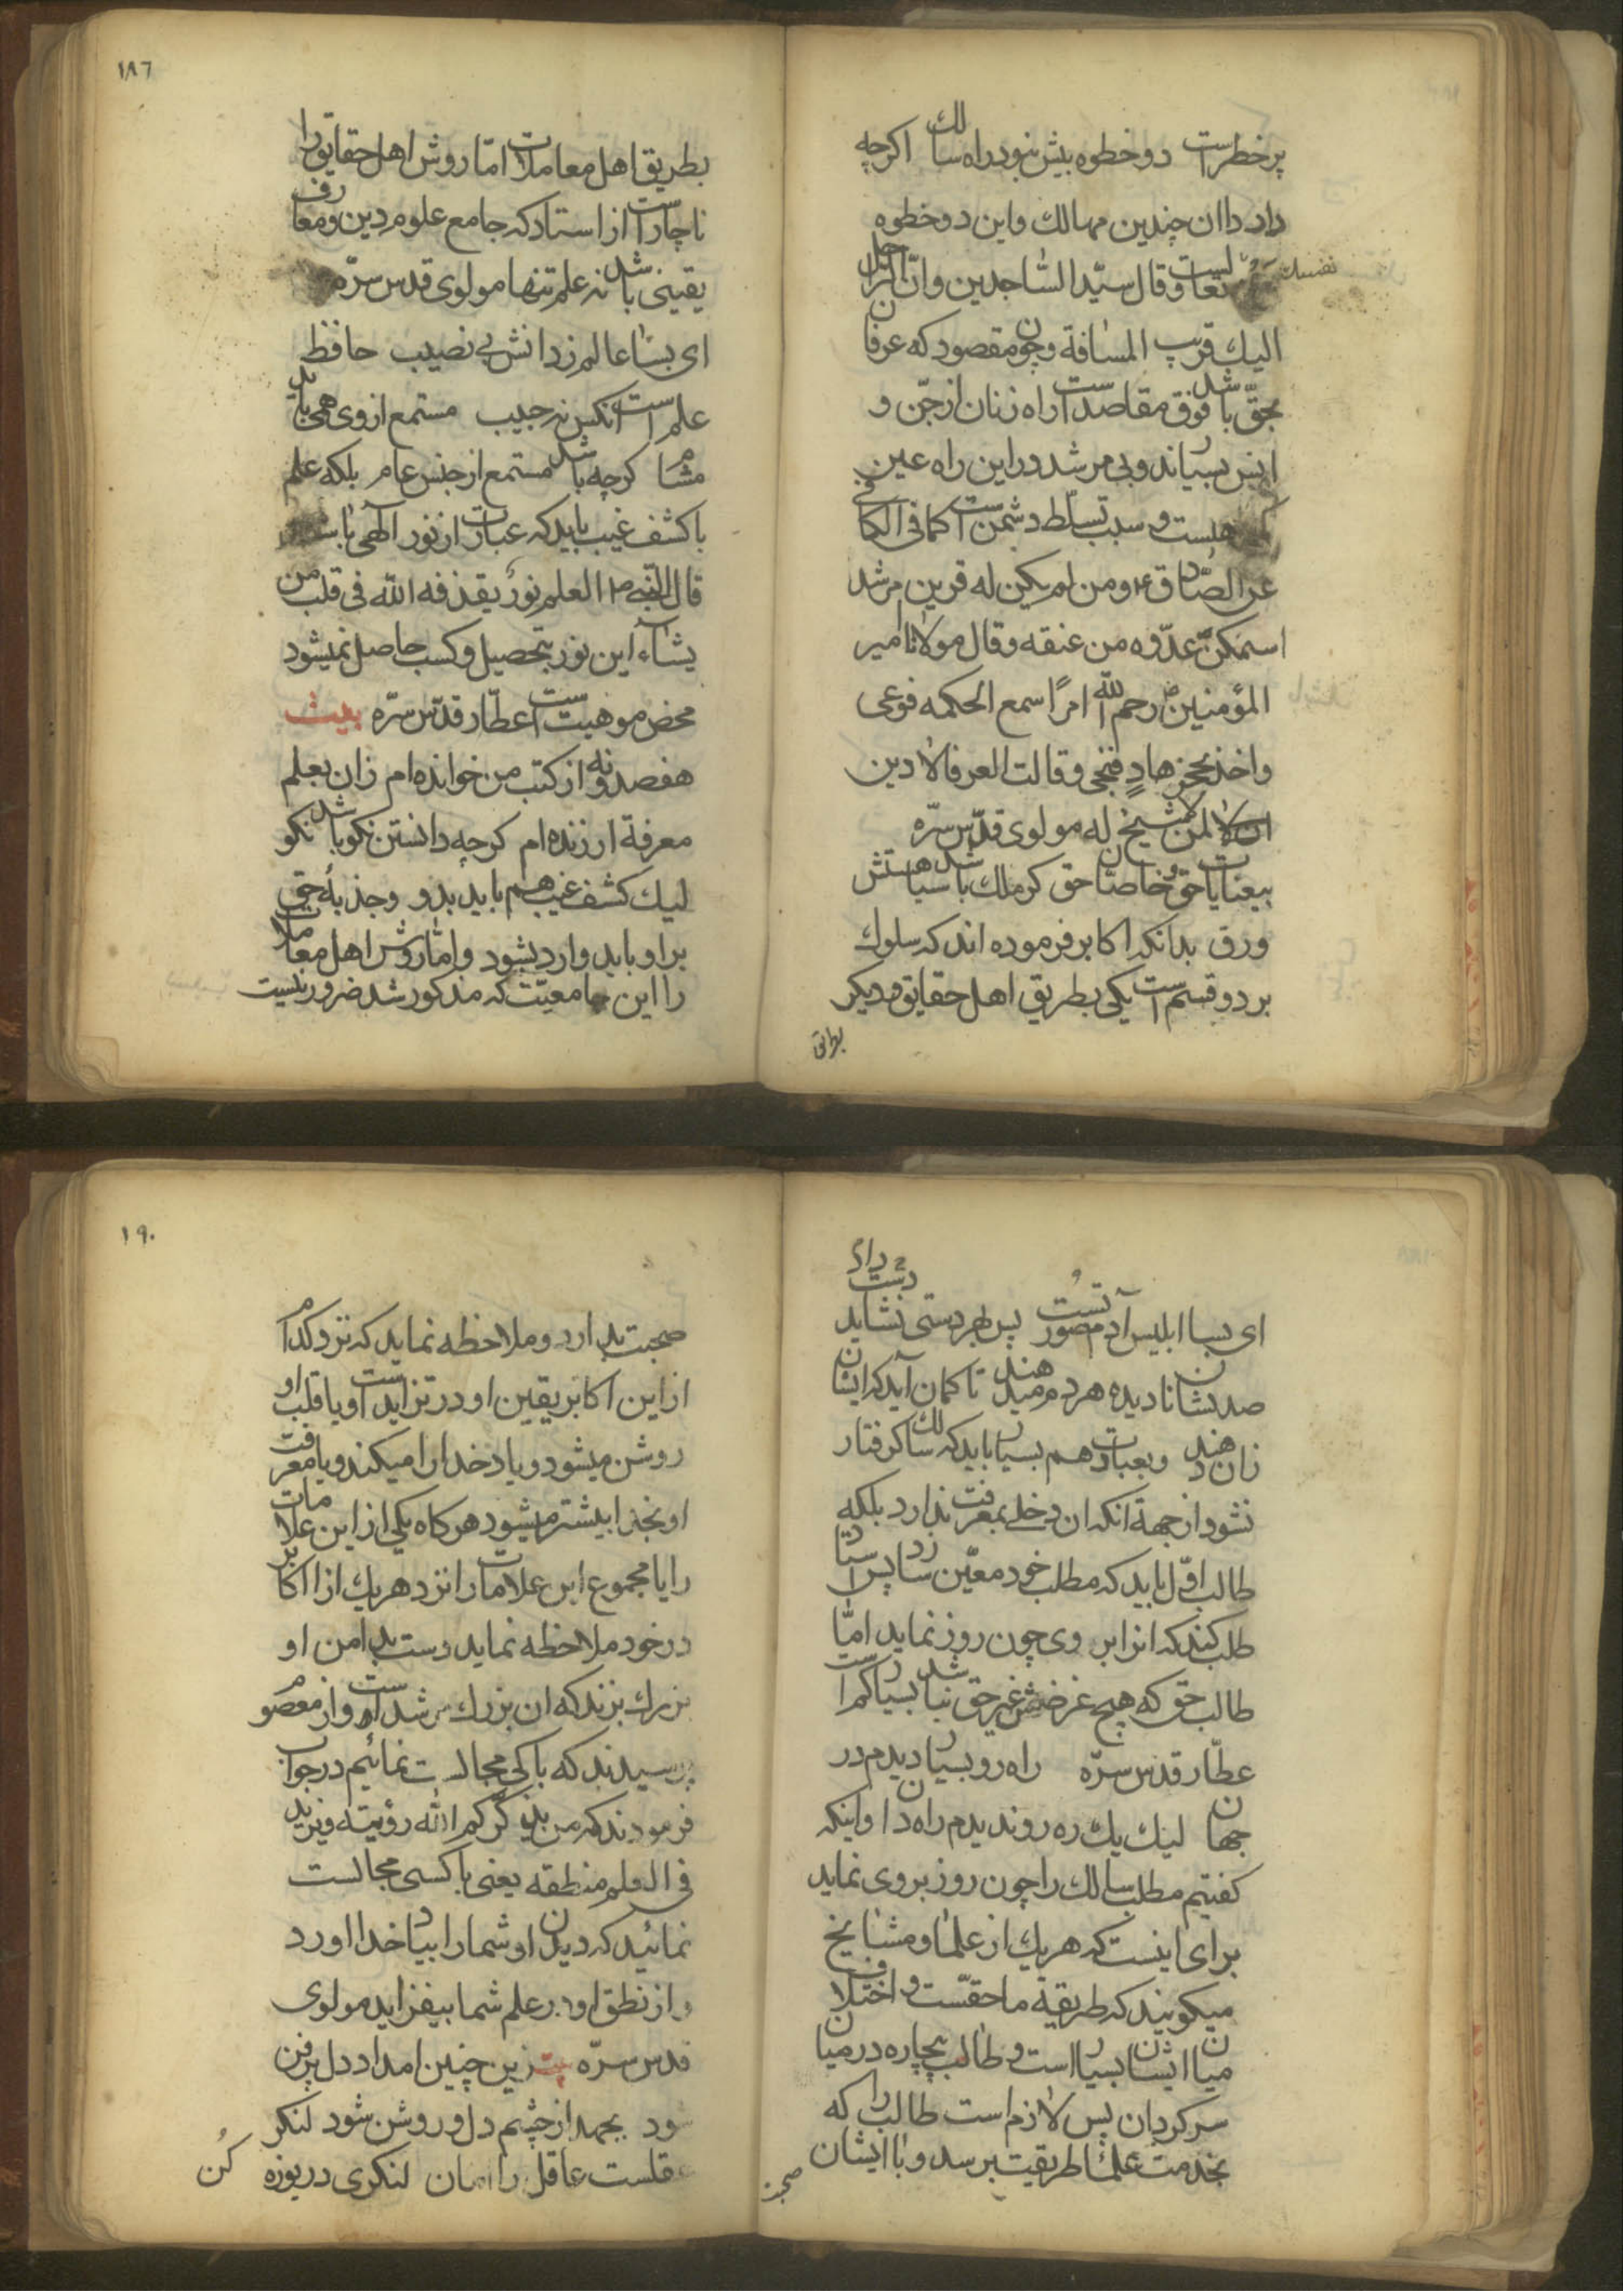 پرخطراست دو خطوه بیش نبود راه سالك اكرچه
دارد اان چندین مهالك واین دو خطوه
نفسك
تعالیست وقال سیّد السّاجدین وانّ الرّاحل
الیك قریب المسافة وچون مقصود كه عرفان
بحقّ باشد فوق مقاصداست راه زنان از جنّ و
انس بسیاراند وبی مرشد در این راه عین
هلست و سبب تسلّط دشمن است كما فی الكافی
عن الصّادق ع ومن لم یكن له قرین مرشد
استمكن عدّوه من عنقه وقال مولانا امیر
المؤمنین رحم الله امرًا سمع الحكمه فوعی
واخذ بحجز هادٍ فنجی وقالت العرفا لا دین
لمن لا شیخ له مولوی قدّس سرّه
بیعنایات حق و خاصان حق كر ملك باشد سیاهستش
ورق بدانكه اكابر فرموده اند كه سلوك
بر دو قسم است یكی بطریق اهل حقایق و دیكر
بطریق
١٨٦
بطریق اهل معاملات امّا روش اهل حقایق را
ناچاراست از استاد كه جامع علوم دین و معارف
یقینی باشد نه علم تنها مولوی قدس سرّه
ای بسا عالم زدانش بی نصیب حافظ
علم است انكس نه حبیب مستمع از وی همی یابد
مشام كرچه باشد مستمع از جنس عام بلكه علم
با كشف غیب باید كه عبارت از نور الهی باشد
قال النّبی ص العلم نورٌ یقذفه الله فی قلب من
یشآء این نور بتحصیل و كسب حاصل نمیشود
محض موهبت است عطّار قدّس سرّه بیت
هفصد و نه از كتب من خوانده ام زان بعلم
معرفة ارزنده ام كرچه دانستن نكو باشد نكو
لیك كشف غیب هم باید بدو وجذبۀ حق
بر او باید وارد بشود وامّا روش اهل معاملات
را این جامعیّت كه مذكور شد ضرور نیست
ای بسا ابلیس آدم صورتست پس بهر دستی نشاید داد دست
صد نشان نادیده هر دم میدهند تا كمان آید كه ایشان
زان دهند وبعبادت هم بسیار باید كه سالك كرفتار
نشود از جهة انكه ان دخلی بمعرفت ندارد بلكه
طالب اوّل باید كه مطلب خود معیّن سازد پس استاد
طلب كند كه انرا بر وی چون روز نماید امّا
طالب حق كه هیچ غرضش غیر حق نباشد بسیار كم است
عطّار قدس سرّه راه رو بسیار دیدم در
جهان لیك یك ره رو ندیدم راه دان واینكه
كفتیم مطلب سالك را چون روز بروی نماید
برای اینست كه هریك از علما و مشایخ
میكویند كه طریقه ما حقّست و اختلاف
میان ایشان بسیار است و طالب بیچاره در میان
سركردان پس لازم است طالب را كه
بخدمت علما طریقت برسد و با ایشان
صحبت
١٩٠
صحبت بدارد و ملاحظه نماید كه نزد كدام
از این اكابر یقین او در تزاید است و یا قلب او
روشن میشود و یا دخدا را میكند و یا معرفت
او بخدا بیشتر میشود هر كاه یكی از این علامات
را یا مجموع این علامات را نزد هریك از اكابر
در خود ملاحظه نماید دست بدامن او
بزرك بزند كه ان بزرك مرشد است و از معصوم
پرسیدند كه با كی مجالست نمائیم در جواب
فرمودند كه من یذكّركم الله رؤیته ویزید
فی العلم منطقه یعنی با كسی مجالست
نمائید كه دیدن او شما را بیاد خدا اورد
و از نطق او در علم شما بیفزاید مولوی
قدس سرّه بیت زین چنین امداد دل پر فن
شود بجهد از چشم دل و روشن شود لنكر
عقلست عاقل را امان لنكری دریوزه كُن